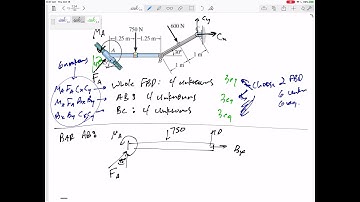 M_A
750 N
600 N
C_y
C_x
A
1.25 m
1.25 m
30°
1 m
1 m
F_A
6 unknowns
M_A F_A C_x C_y
whole FBD: 4 unknowns
3eq
choose 2 FBD
M_A F_A B_x B_y
AB: 4 unknowns
3eq
6 unkn
B_x B_y C_x C_y
BC: 4 unknowns
3eq
6 eq.
BAR AB:
M_A
750
B_x
F_A